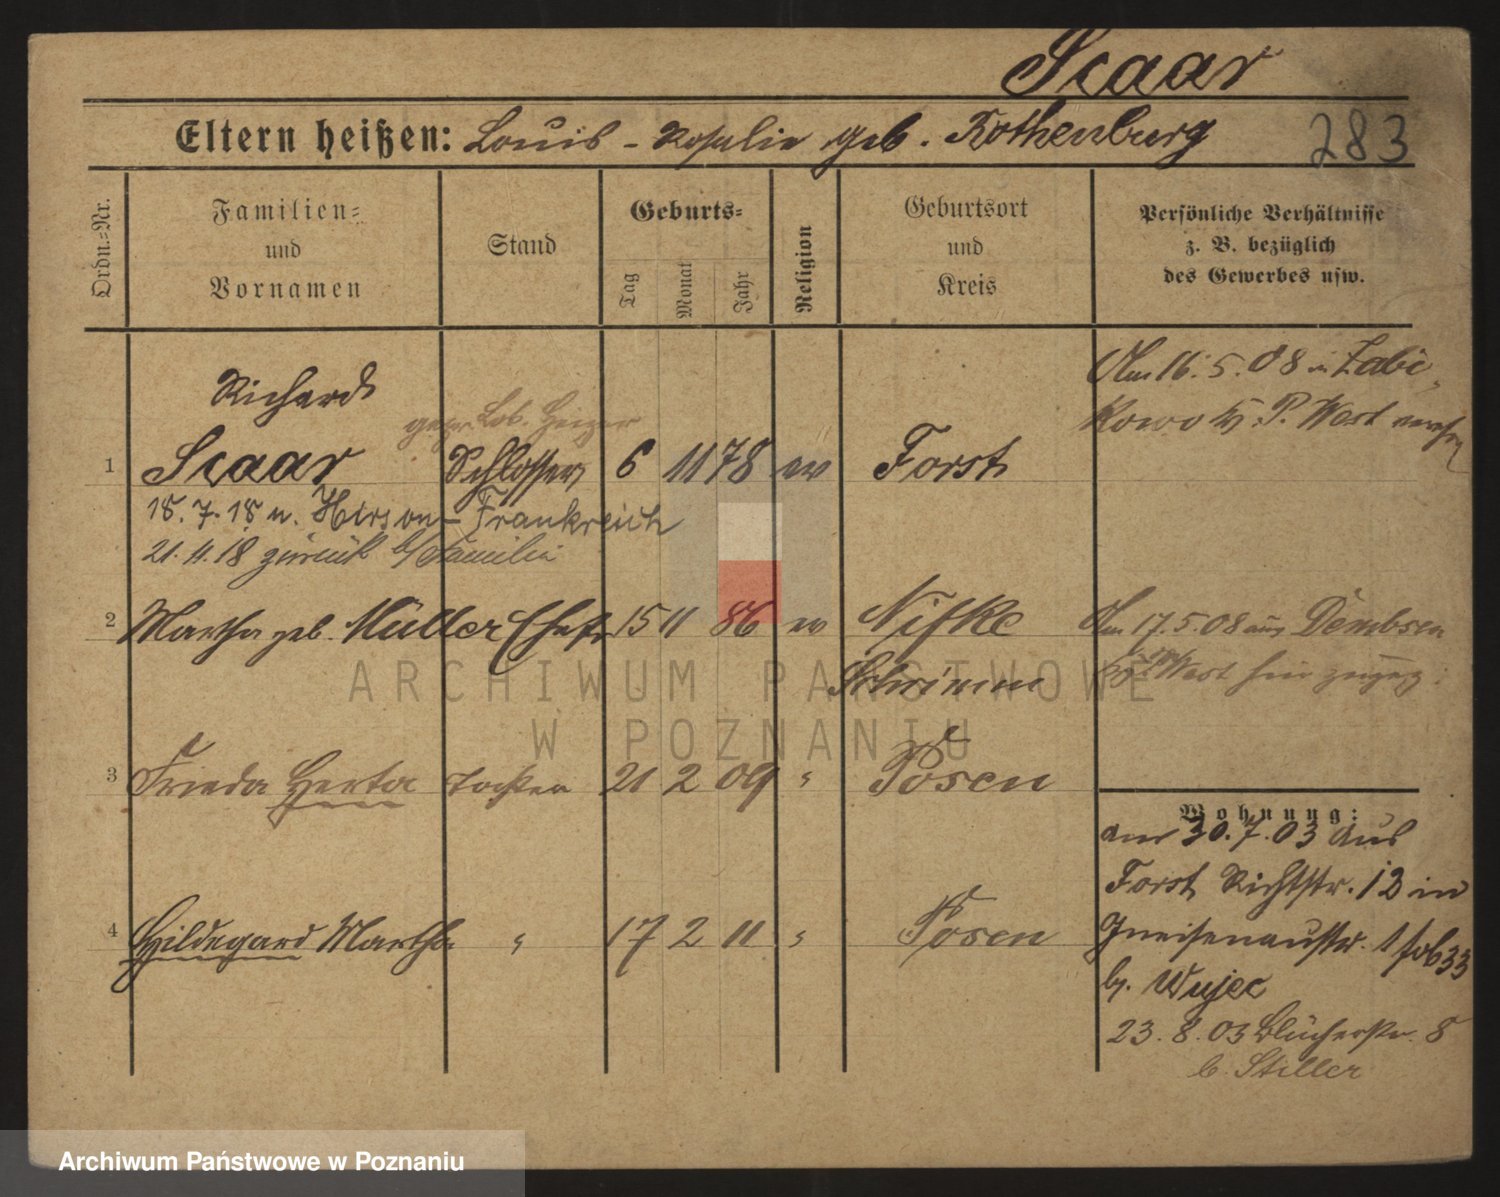 Scaar
Eltern heißen: Louis - Rosalie geb. Rothenburg
283
Ordn.-Nr.
Familien-
und
Vornamen
Stand
Geburts-
Tag
Monat
Jahr
Religion
Geburtsort
und
Kreis
Persönliche Verhältnisse
z. B. bezüglich
des Gewerbes usw.
Richard
gepr. Lok. Heizer
1 Scaar Schlosser 6 11 78 ev Forst
Am 16.5.08 in Zabi-
kowo Kr. P. West
18.7.18 n. Hirson - Frankreich
21.11.18 zurück b/Familie
2 Martha geb. Müller Ehefr 15 11 86 ev Nifke
Schrimm
Am 17.5.08 aus Dembsen
West hier zugez.
3 Frieda Herta Tochter 21 2 09 " Posen
4 Hildegard Martha " 17 2 11 " Posen
Wohnung:
am 30.7.03 aus
Forst Richtstr. 12 in
Gneisenaustr. 1
b. Wujec
23.8.03 Blücherstr. 8
b. Stiller
ARCHIWUM PAŃSTWOWE
W POZNANIU
Archiwum Państwowe w Poznaniu